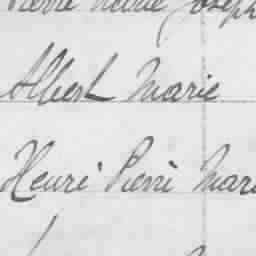 Pierre Marie Joseph
Albert Marie
Henri Pierre Mari